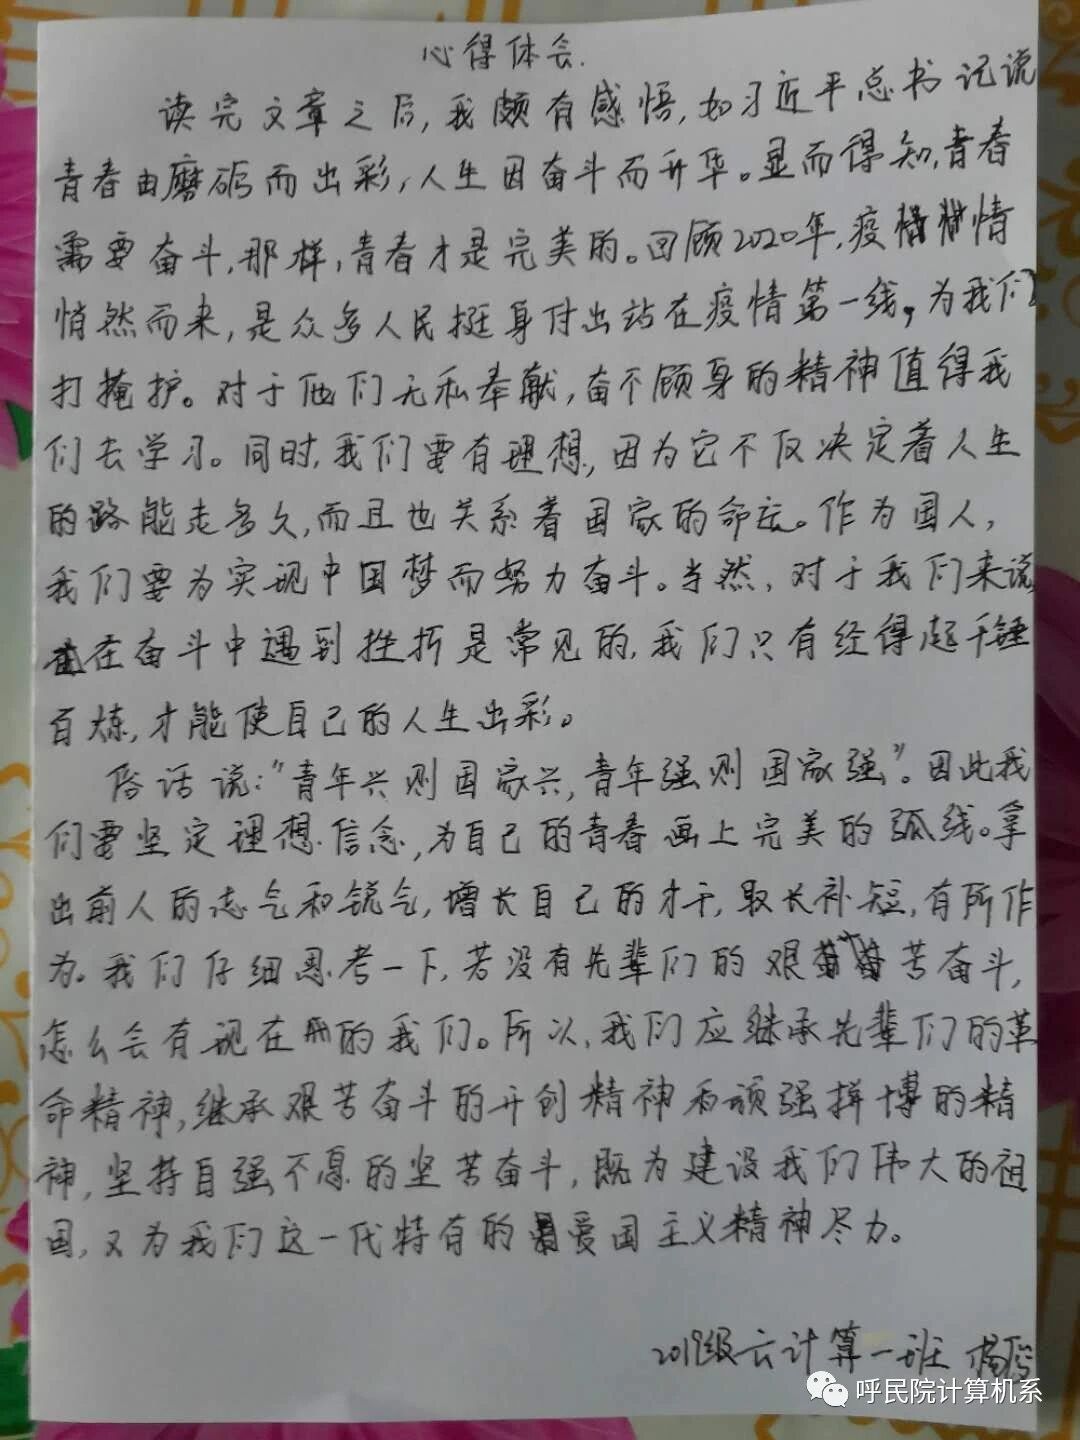 心得体会.
读完文章之后,我颇有感悟,如习近平总书记说
青春由磨砺而出彩,人生因奋斗而升华。显而得知,青春
需要奋斗,那样,青春才是完美的。回顾2020年,疫情
悄然而来,是众多人民挺身付出站在疫情第一线,为我们
打掩护。对于他们无私奉献,奋不顾身的精神值得我
们去学习。同时,我们要有理想,因为它不仅决定着人生
的路能走多久,而且也关系着国家的命运。作为国人,
我们要为实现中国梦而努力奋斗。当然,对于我们来说
在奋斗中遇到挫折是常见的,我们只有经得起千锤
百炼,才能使自己的人生出彩。
俗话说:"青年兴则国家兴,青年强则国家强"。因此我
们要坚定理想信念,为自己的青春画上完美的弧线。拿
出前人的志气和锐气,增长自己的才干,取长补短,有所作
为。我们仔细思考一下,若没有先辈们的艰苦奋斗,
怎么会有现在的我们。所以,我们应继承先辈们的革
命精神,继承艰苦奋斗的开创精神和顽强拼博的精
神,坚持自强不息的坚苦奋斗,既为建设我们伟大的祖
国,又为我们这一代特有的爱国主义精神尽力。
2019级云计算一班 杨
呼民院计算机系